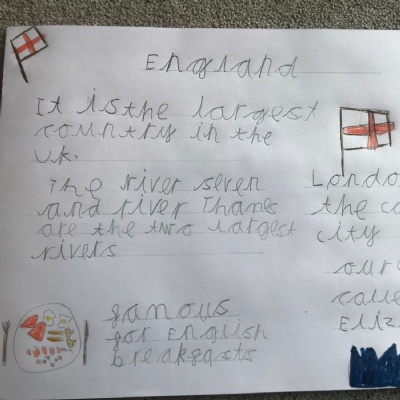 England
It is the largest
country in the
UK.
The river seven
and river Thames
are the two largest
rivers
famous
for English
breakfasts
Londo
the ca
city
our
calle
Eliz